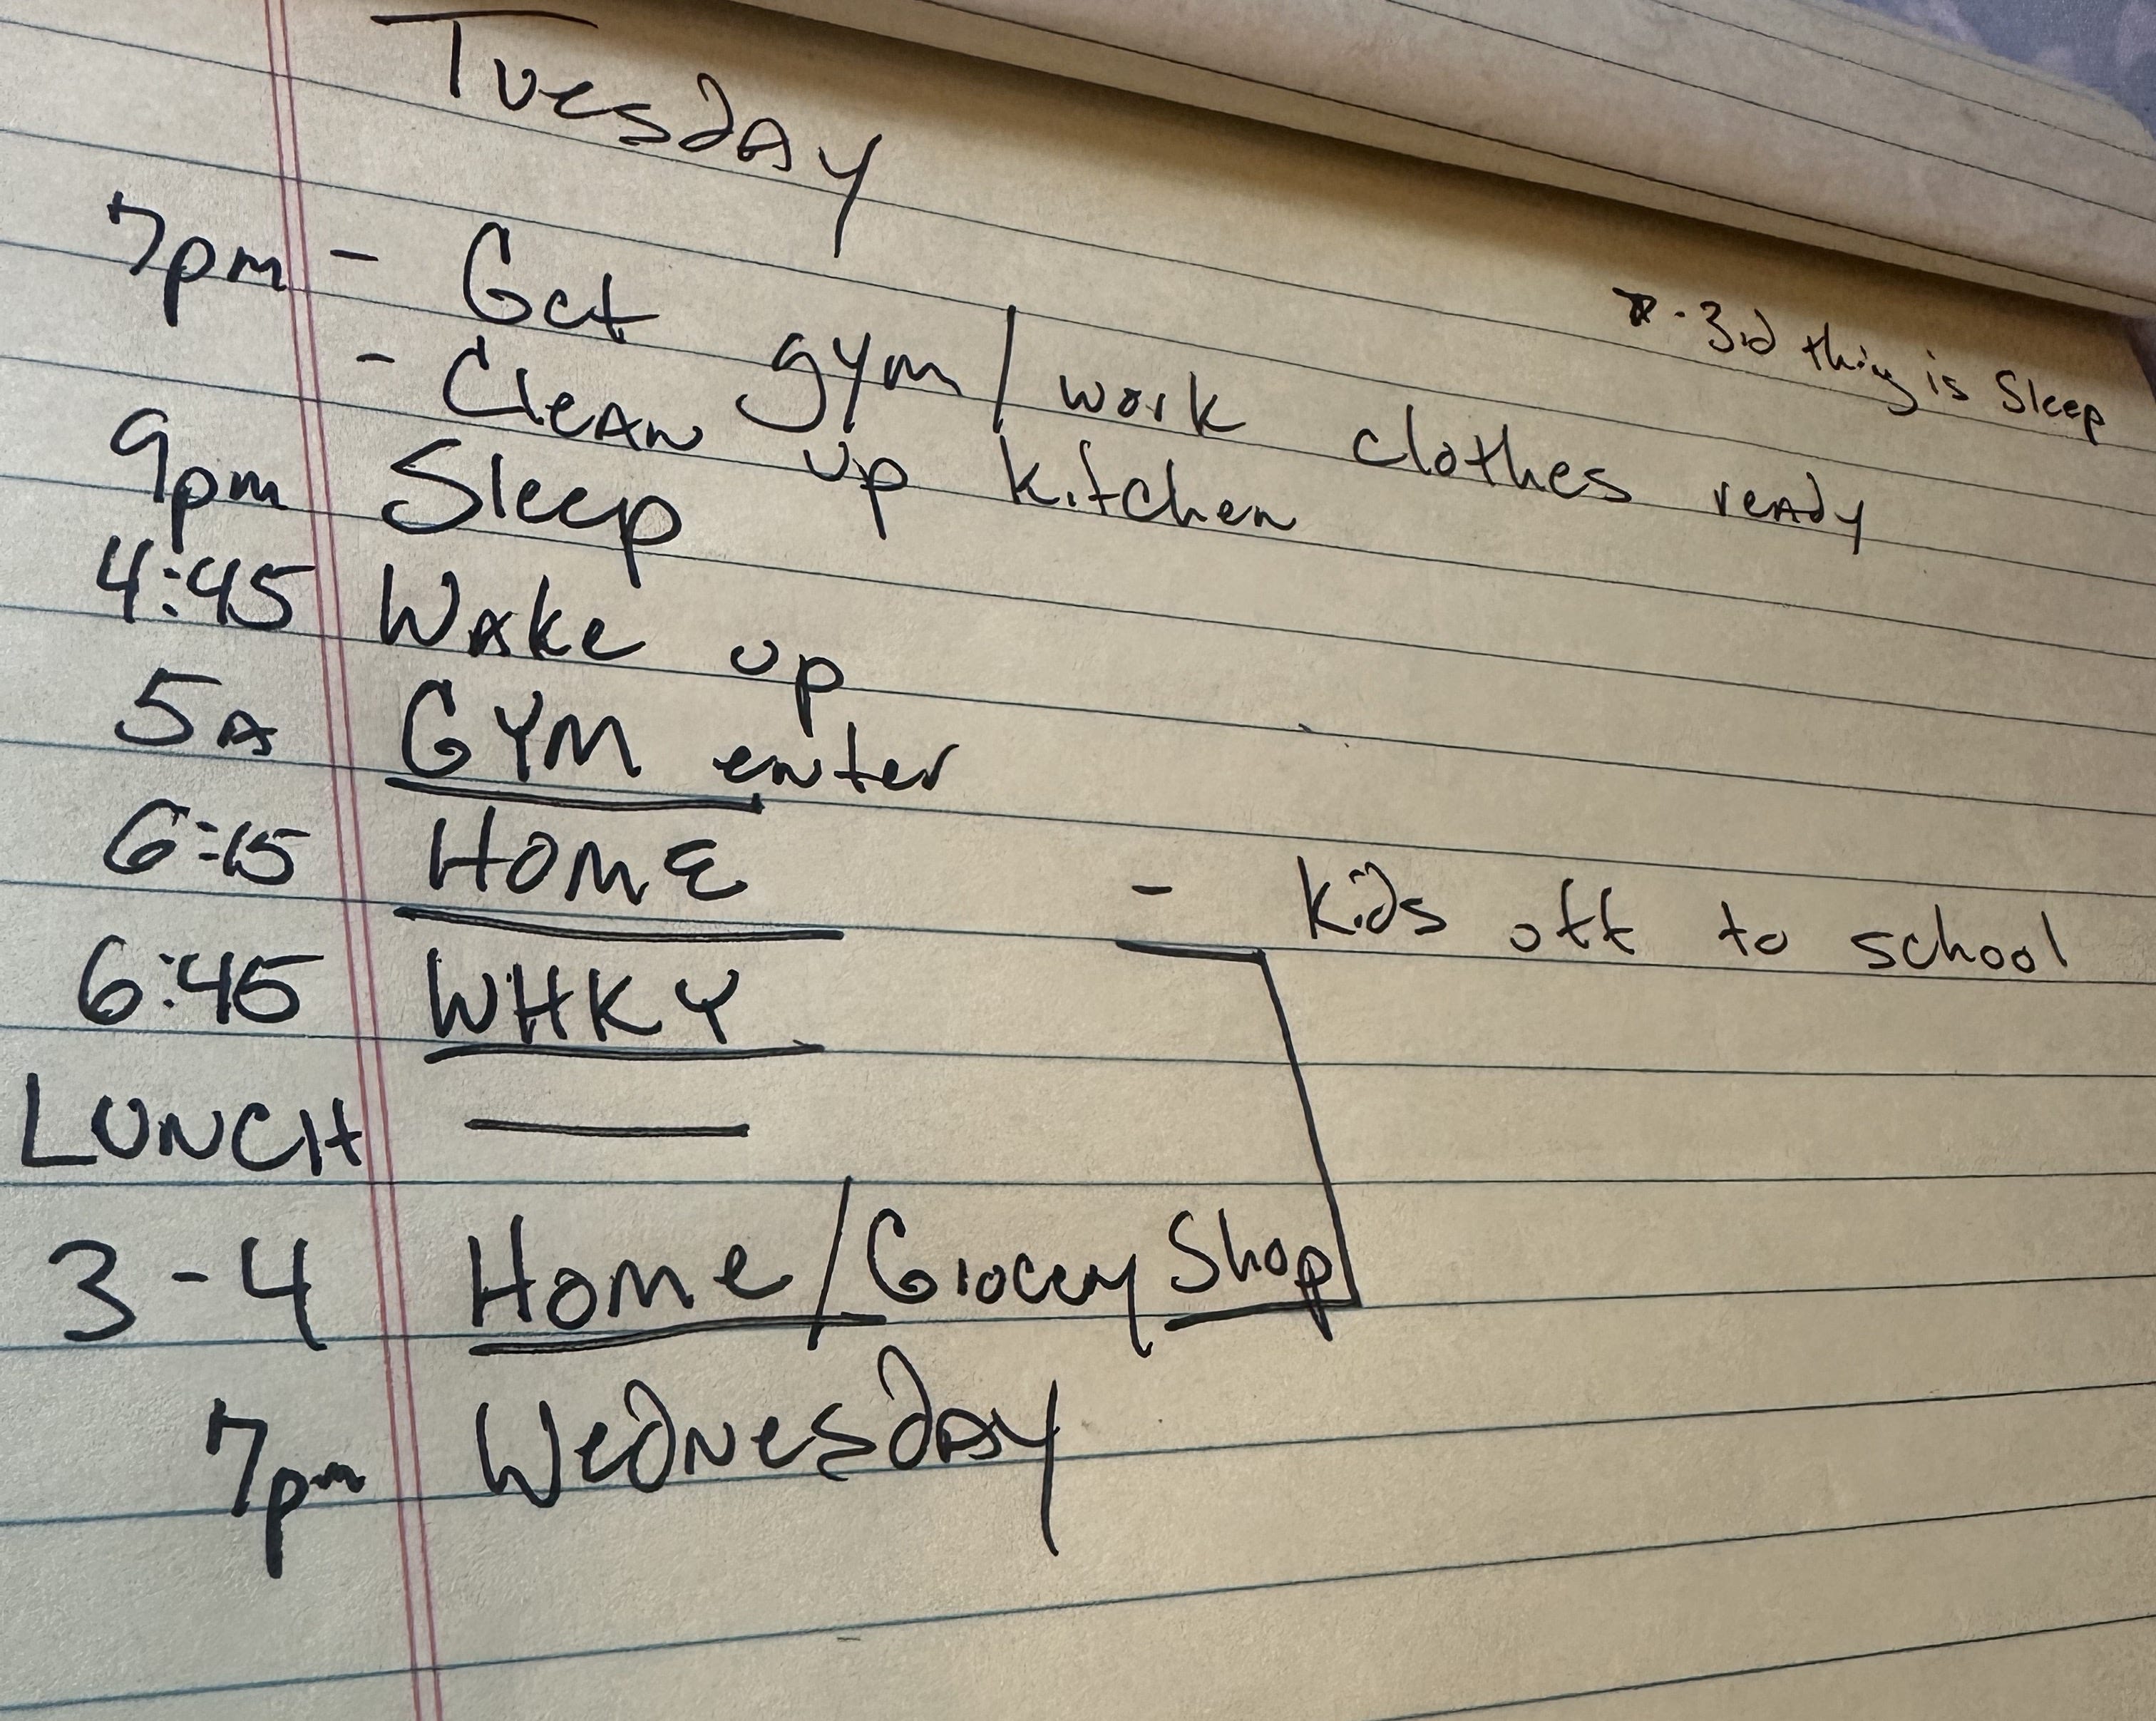 Tuesday
7pm - Get gym/work clothes ready
* - 3rd thing is Sleep
- Clean up kitchen
9pm Sleep
4:45 Wake up
5A GYM enter
6:15 HOME - Kids off to school
6:45 WHKY
LUNCH
3-4 Home/Grocery Shop
7pm Wednesday